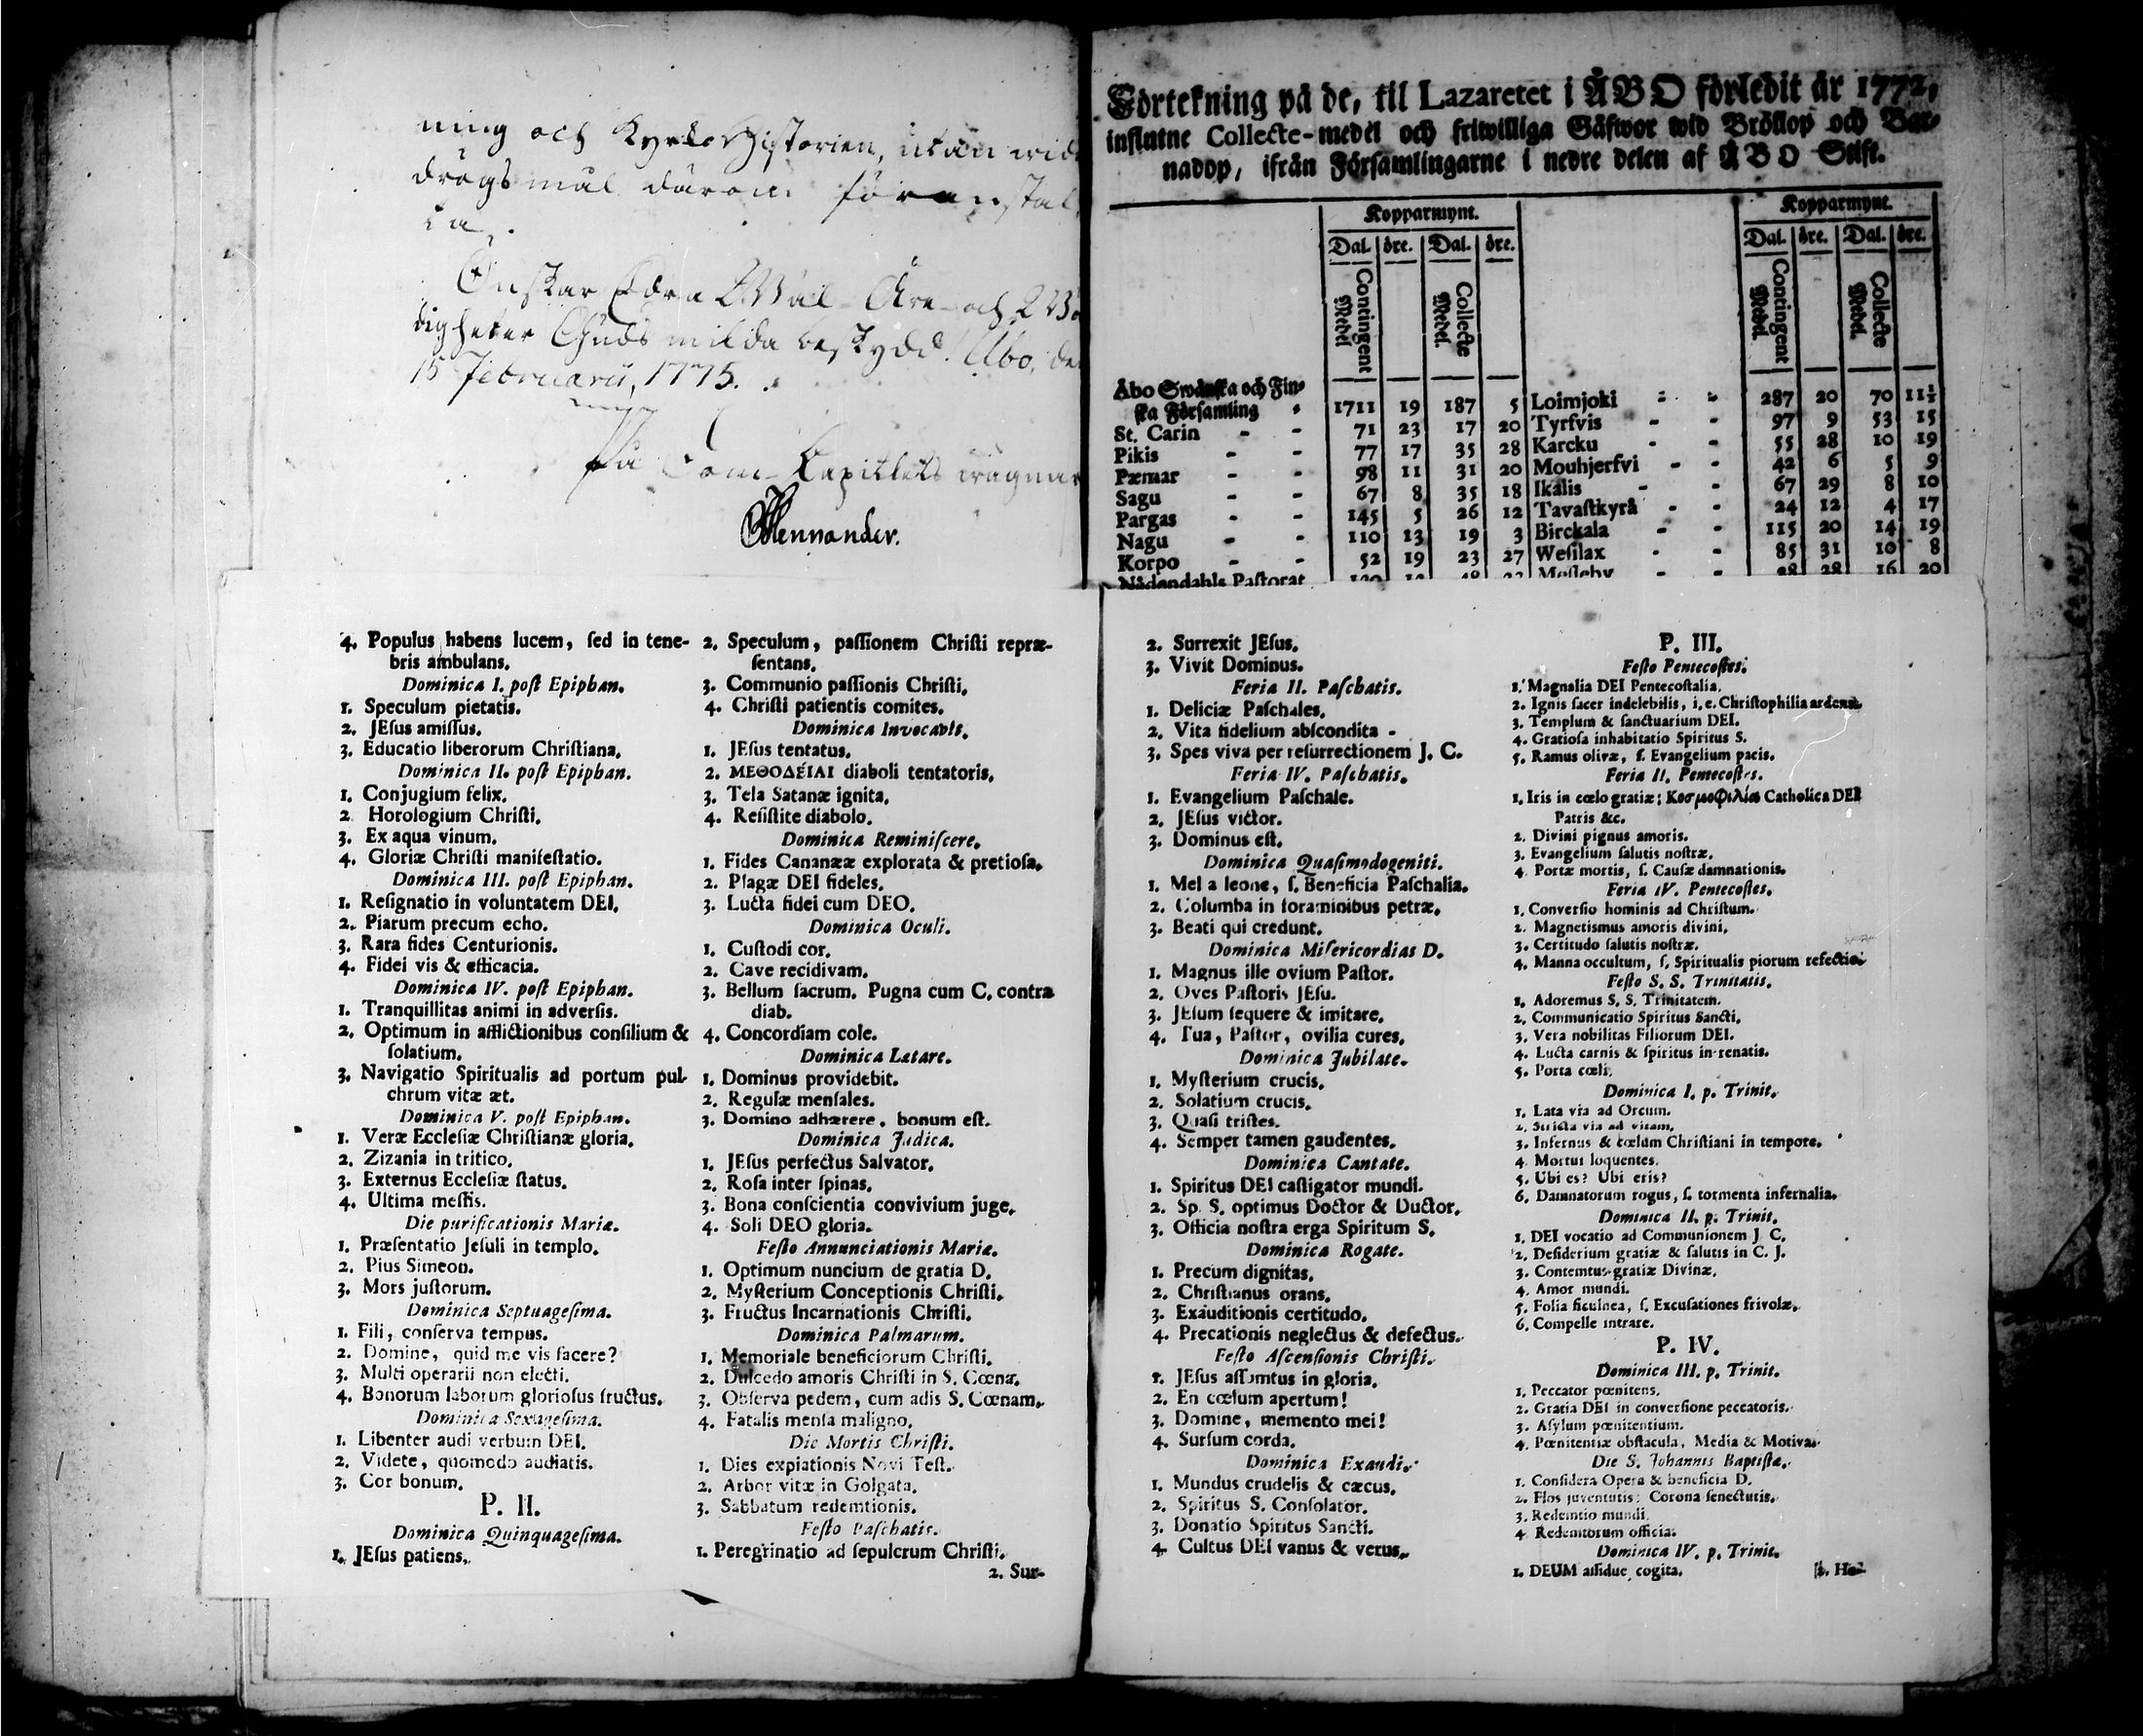 ning och Kyrko Historien, utan
drögsmål därom föranstal
ta.
Önskar Edra Wäl Äre och
digheter Guds milda beskydd! Åbo,
15 Februarii, 1775.
På Dom Capitlets wägnar
Mennander.
Förtekning på de, til Lazaretet i ÅBO förledit år 1772,
influtne Collecte-medel och friwilliga Gåfwor wid Bröllop och Bar-
nadop, ifrån Församlingarne i nedre delen af ÅBO Stift.
Kopparmynt. Kopparmynt.
Dal. öre. Dal. öre. Dal. öre. Dal. öre.
Contingent Medel Collecte Medel. Contingent Medel. Collecte Medel.
Åbo Swänska och Fin-
ska Församling - 1711 19 187 5 Loimjoki - - 287 20 70 11½
St. Carin - - 71 23 17 20 Tyrfvis - - 97 9 53 15
Pikis - - 77 17 35 28 Karcku - - 55 28 10 19
Pæmar - - 98 11 31 20 Mouhjerfvi - - 42 6 5 9
Sagu - - 67 8 35 18 Ikalis - - 67 29 8 10
Pargas - - 145 5 26 12 Tavaſtkyrå - - 24 12 4 17
Nagu - - 110 13 19 3 Birckala - - 115 20 14 19
Korpo - - 52 19 23 27 Weſilax - - 85 31 10 8
Nådendahls Paſtorat Meſſeby - - 28 28 16 20
4. Populus habens lucem, ſed in tene-
bris ambulans.
Dominica I. poſt Epiphan.
1. Speculum pietatis.
2. JEſus amiſſus.
3. Educatio liberorum Chriſtiana.
Dominica II. poſt Epiphan.
1. Conjugium felix.
2 Horologium Chriſti.
3. Ex aqua vinum.
4. Gloriæ Chriſti manifeſtatio.
Dominica III. poſt Epiphan.
1. Reſignatio in voluntatem DEI.
2. Piarum precum echo.
3. Rara fides Centurionis.
4. Fidei vis & efficacia.
Dominica IV. poſt Epiphan.
1. Tranquillitas animi in adverſis.
2. Optimum in afflictionibus conſilium &
ſolatium.
3. Navigatio Spiritualis ad portum pul-
chrum vitæ æt.
Dominica V. poſt Epiphan.
1. Veræ Eccleſiæ Chriſtianæ gloria.
2. Zizania in tritico.
3. Externus Eccleſiæ ſtatus.
4. Ultima meſſis.
Die purificationis Mariæ.
1. Præſentatio Jeſuli in templo.
2. Pius Simeon.
3. Mors juſtorum.
Dominica Septuageſima.
1. Fili, conſerva tempus.
2. Domine, quid me vis facere?
3. Multi operarii non electi.
4. Bonorum laborum glorioſus fructus.
Dominica Sexageſima.
1. Libenter audi verbum DEI.
2. Videte, quomodo audiatis.
3. Cor bonum.
P. II.
Dominica Quinquageſima.
1. JEſus patiens.
2. Speculum, paſſionem Chriſti repræ-
ſentans.
3. Communio paſſionis Chriſti.
4. Chriſti patientis comites.
Dominica Invocavit.
1. JEſus tentatus.
2. ΜΕΘΟΔΕΊΑΙ diaboli tentatoris.
3. Tela Satanæ ignita.
4. Reſiſtite diabolo.
Dominica Reminiſcere.
1. Fides Cananææ explorata & pretioſa.
2. Plagæ DEI fideles.
3. Lucta fidei cum DEO.
Dominica Oculi.
1. Cuſtodi cor.
2. Cave recidivam.
3. Bellum ſacrum. Pugna cum C. contra
diab.
4. Concordiam cole.
Dominica Lætare.
1. Dominus providebit.
2. Regulæ menſales.
3. Domino adhærere, bonum eſt.
Dominica Judica.
1. JEſus perfectus Salvator.
2. Roſa inter ſpinas.
3. Bona conſcientia convivium juge.
4. Soli DEO gloria.
Feſto Annunciationis Mariæ.
1. Optimum nuncium de gratia D.
2. Myſterium Conceptionis Chriſti.
3. Fructus Incarnationis Chriſti.
Dominica Palmarum.
1. Memoriale beneficiorum Chriſti.
2. Dulcedo amoris Chriſti in S. Cœna.
3. Obſerva pedem, cum adis S. Cœnam.
4. Fatalis menſa maligno.
Die Mortis Chriſti.
1. Dies expiationis Novi Teſt.
2. Arbor vitæ in Golgata.
3. Sabbatum redemtionis.
Feſto Paſchatis.
1. Peregrinatio ad ſepulcrum Chriſti.
2. Sur-
2. Surrexit JEſus.
3. Vivit Dominus.
Feria II. Paſchatis.
1. Deliciæ Paſchales.
2. Vita fidelium abſcondita -
3. Spes viva per reſurrectionem J. C.
Feria IV. Paſchatis.
1. Evangelium Paſchale.
2. JEſus victor.
3. Dominus eſt.
Dominica Quaſimodogeniti.
1. Mel a leone, ſ. Beneficia Paſchalia.
2. Columba in foraminibus petræ.
3. Beati qui credunt.
Dominica Miſericordias D.
1. Magnus ille ovium Paſtor.
2. Oves Paſtoris JEſu.
3. JEſum ſequere & imitare.
4. Tua, Paſtor, ovilia cures.
Dominica Jubilate.
1. Myſterium crucis.
2. Solatium crucis.
3. Quaſi triſtes.
4. Semper tamen gaudentes.
Dominica Cantate.
1. Spiritus DEI caſtigator mundi.
2. Sp. S. optimus Doctor & Ductor.
3. Officia noſtra erga Spiritum S.
Dominica Rogate.
1. Precum dignitas.
2. Chriſtianus orans.
3. Exauditionis certitudo.
4. Precationis neglectus & defectus.
Feſto Aſcenſionis Chriſti.
1. JEſus aſſumtus in gloria.
2. En cœlum apertum!
3. Domine, memento mei!
4. Surſum corda.
Dominica Exaudi.
1. Mundus crudelis & cæcus.
2. Spiritus S. Conſolator.
3. Donatio Spiritus Sancti.
4. Cultus DEI vanus & verus.
P. III.
Feſto Pentecoſtes.
1. Magnalia DEI Pentecoſtalia.
2. Ignis ſacer indelebilis, i. e. Chriſtophilia ardens.
3. Templum & ſanctuarium DEI.
4. Gratioſa inhabitatio Spiritus S.
5. Ramus olivæ, ſ. Evangelium pacis.
Feria II. Pentecoſtes.
1. Iris in cœlo gratiæ; Κοσμοφιλία Catholica DEI
Patris &c.
2. Divini pignus amoris.
3. Evangelium ſalutis noſtræ.
4. Portæ mortis, ſ. Cauſæ damnationis.
Feria IV. Pentecoſtes.
1. Converſio hominis ad Chriſtum.
2. Magnetismus amoris divini.
3. Certitudo ſalutis noſtræ.
4. Manna occultum, ſ. Spiritualis piorum refectio.
Feſto S. S. Trinitatis.
1. Adoremus S. S. Trinitatem.
2. Communicatio Spiritus Sancti.
3. Vera nobilitas Filiorum DEI.
4. Lucta carnis & ſpiritus in renatis.
5. Porta cœli.
Dominica I. p. Trinit.
1. Lata via ad Orcum.
2. Stricta via ad vitam.
3. Infernus & cœlum Chriſtiani in tempore.
4. Mortui loquentes.
5. Ubi es? Ubi eris?
6. Damnatorum rogus, ſ. tormenta infernalia.
Dominica II. p. Trinit.
1. DEI vocatio ad Communionem J C.
2. Deſiderium gratiæ & ſalutis in C. J.
3. Contemtus gratiæ Divinæ.
4. Amor mundi.
5. Folia ficulnea, ſ. Excuſationes frivolæ.
6. Compelle intrare.
P. IV.
Dominica III. p. Trinit.
1. Peccator pœnitens.
2. Gratia DEI in converſione peccatoris.
3. Aſylum pœnitentium.
4. Pœnitentiæ obſtacula, Media & Motiva.
Die S. Johannis Baptiſtæ.
1. Conſidera Opera & beneficia D.
2. Flos juventutis: Corona ſenectutis.
3. Redemtio mundi.
4. Redemtorum officia.
Dominica IV. p. Trinit.
1. DEUM aſſidue cogita.